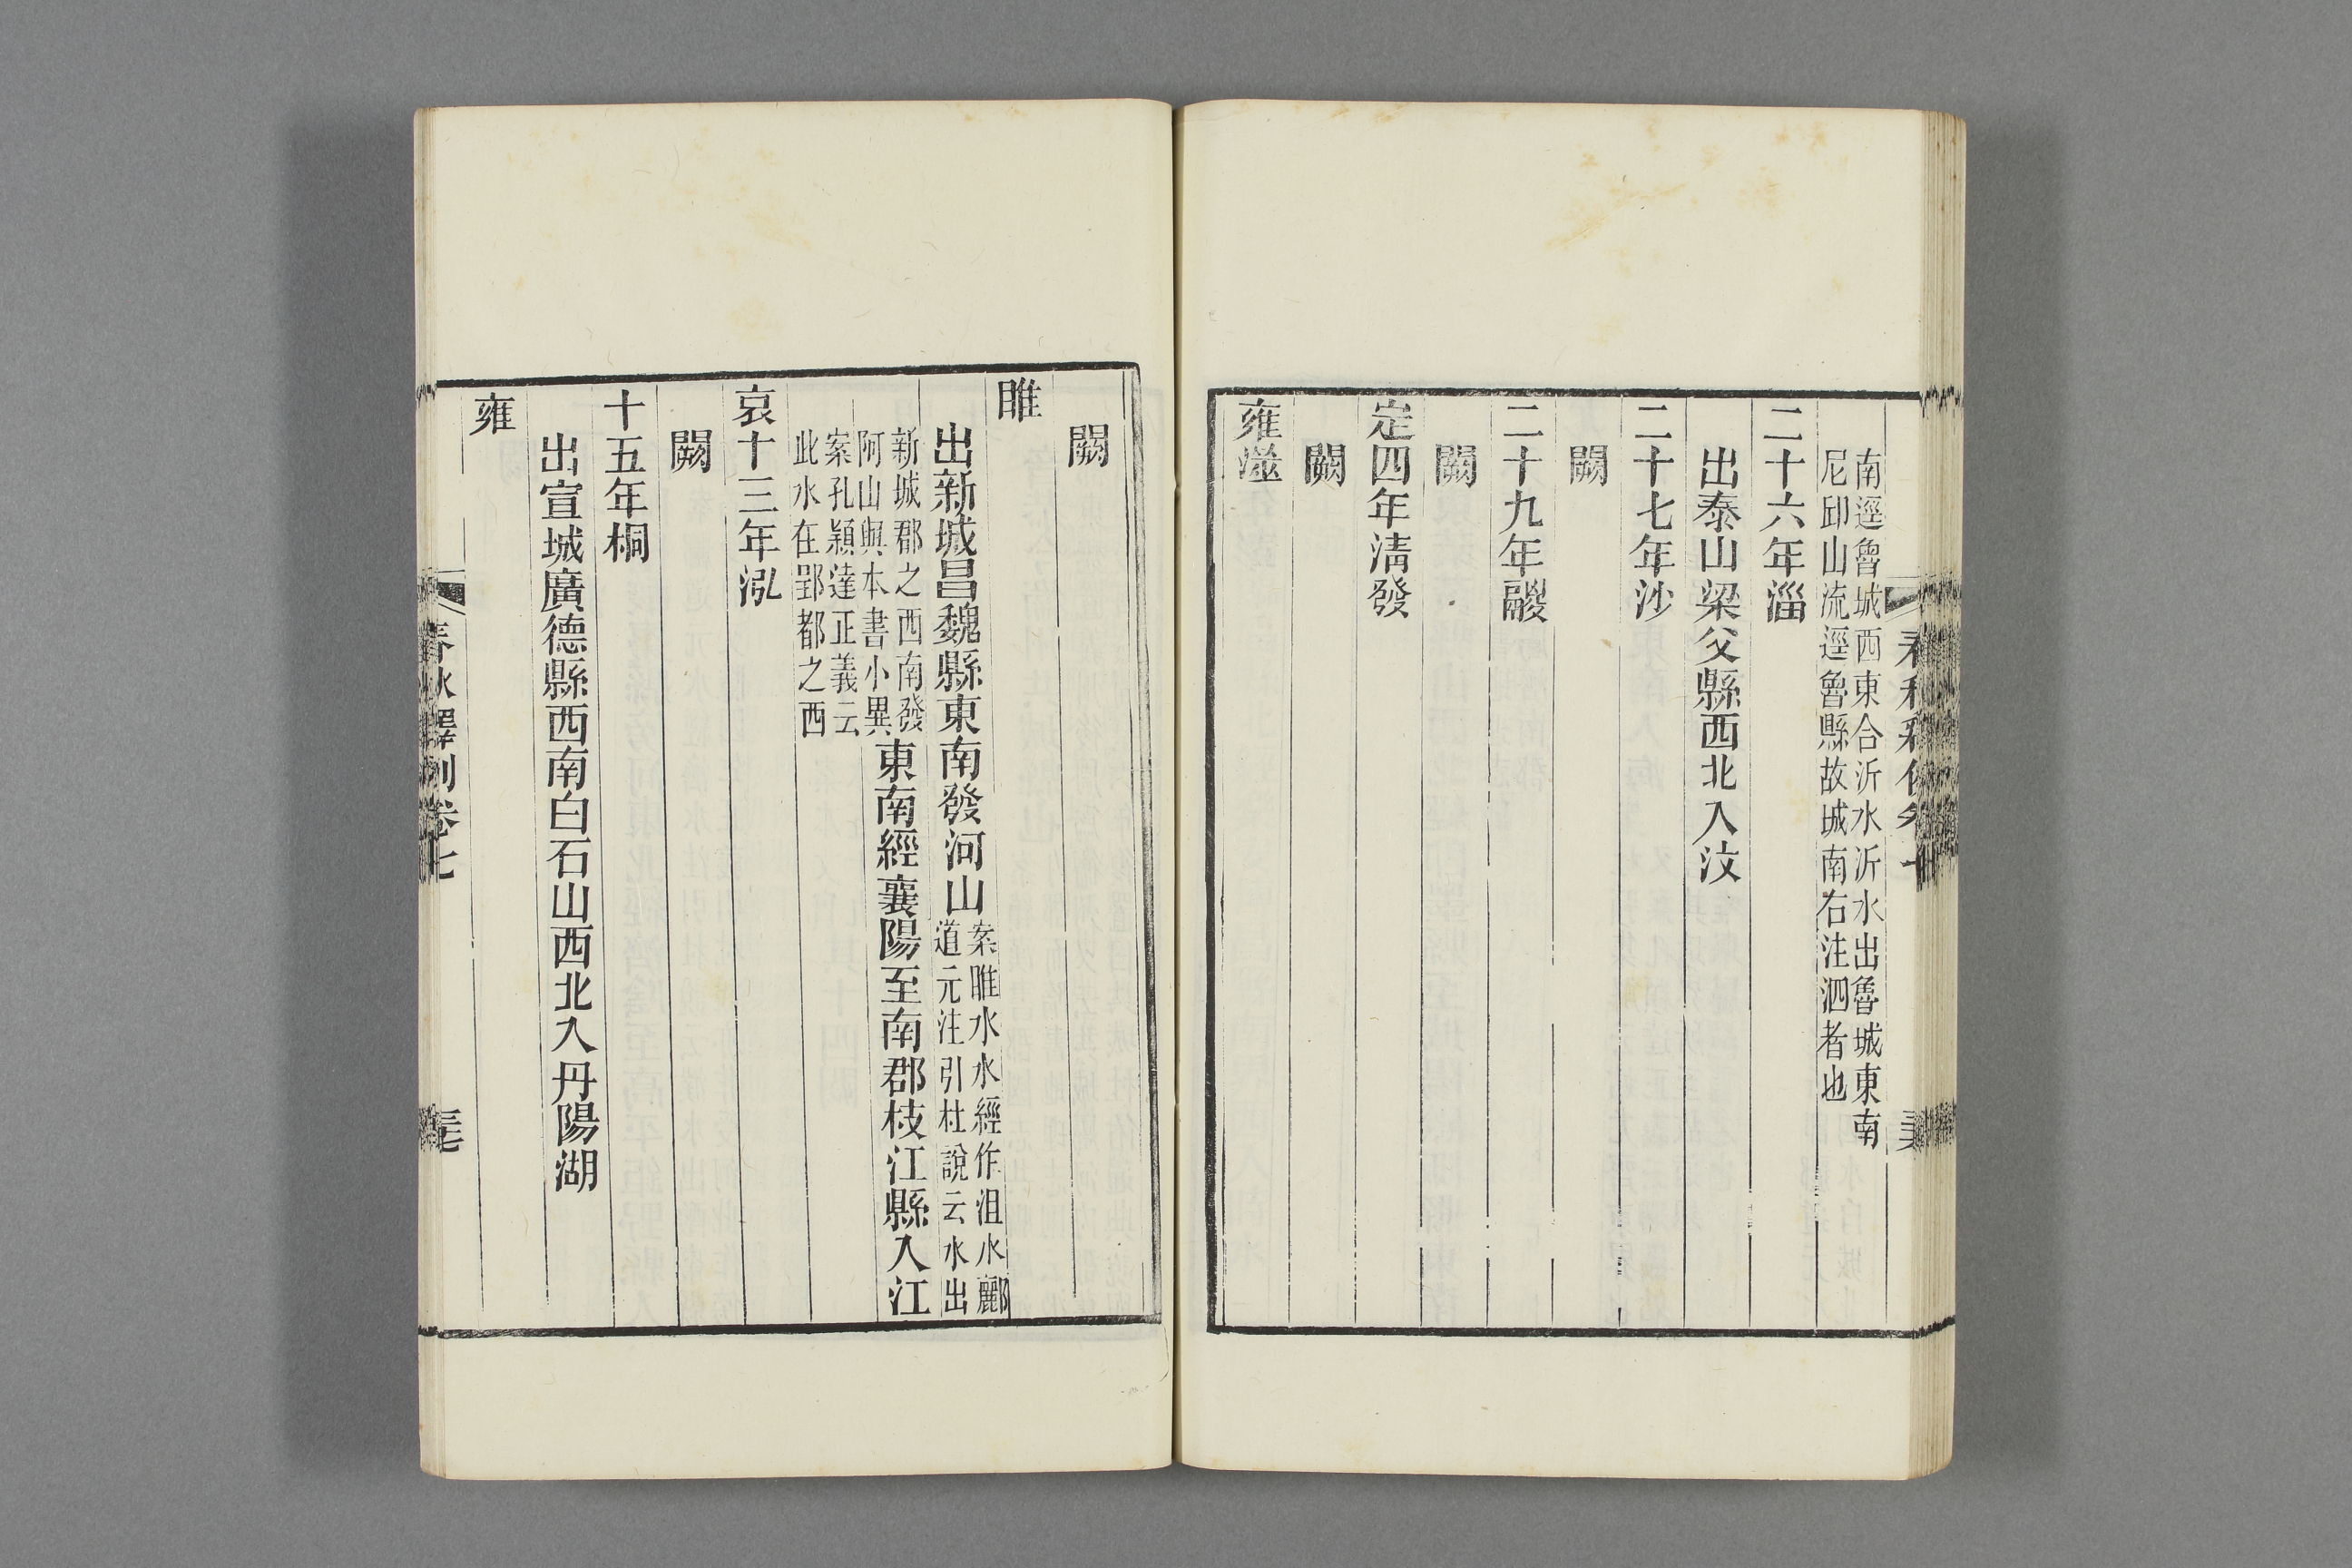 南逕魯城西東合沂水沂水出魯城東南
尼邱山流逕魯縣故城南右注泗者也
二十六年淄
出泰山梁父縣西北入汶
二十七年沙
闕
二十九年鄾
闕
定四年清發
闕
雍澨
闕
雎
出新城昌魏縣東南發河山案雎水水經作沮水酈
道元注引杜說云水出
新城郡之西南發
阿山與本書小異東南經襄陽至南郡枝江縣入江
案孔穎達正義云
此水在郢都之西
哀十三年泓
闕
十五年桐
出宣城廣德縣西南白石山西北入丹陽湖
雍
春秋釋例卷七